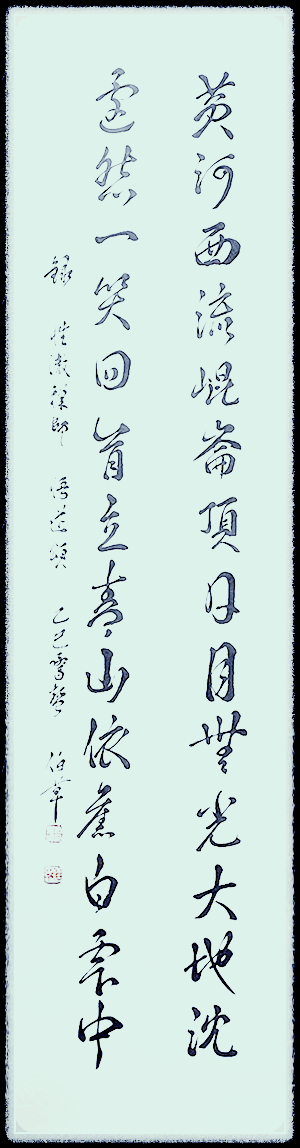 黃河西流崐崙頂日月無光大地沈
遽然一笑回首立青山依舊白雲中
錄 性澈禪師 悟道頌 乙巳